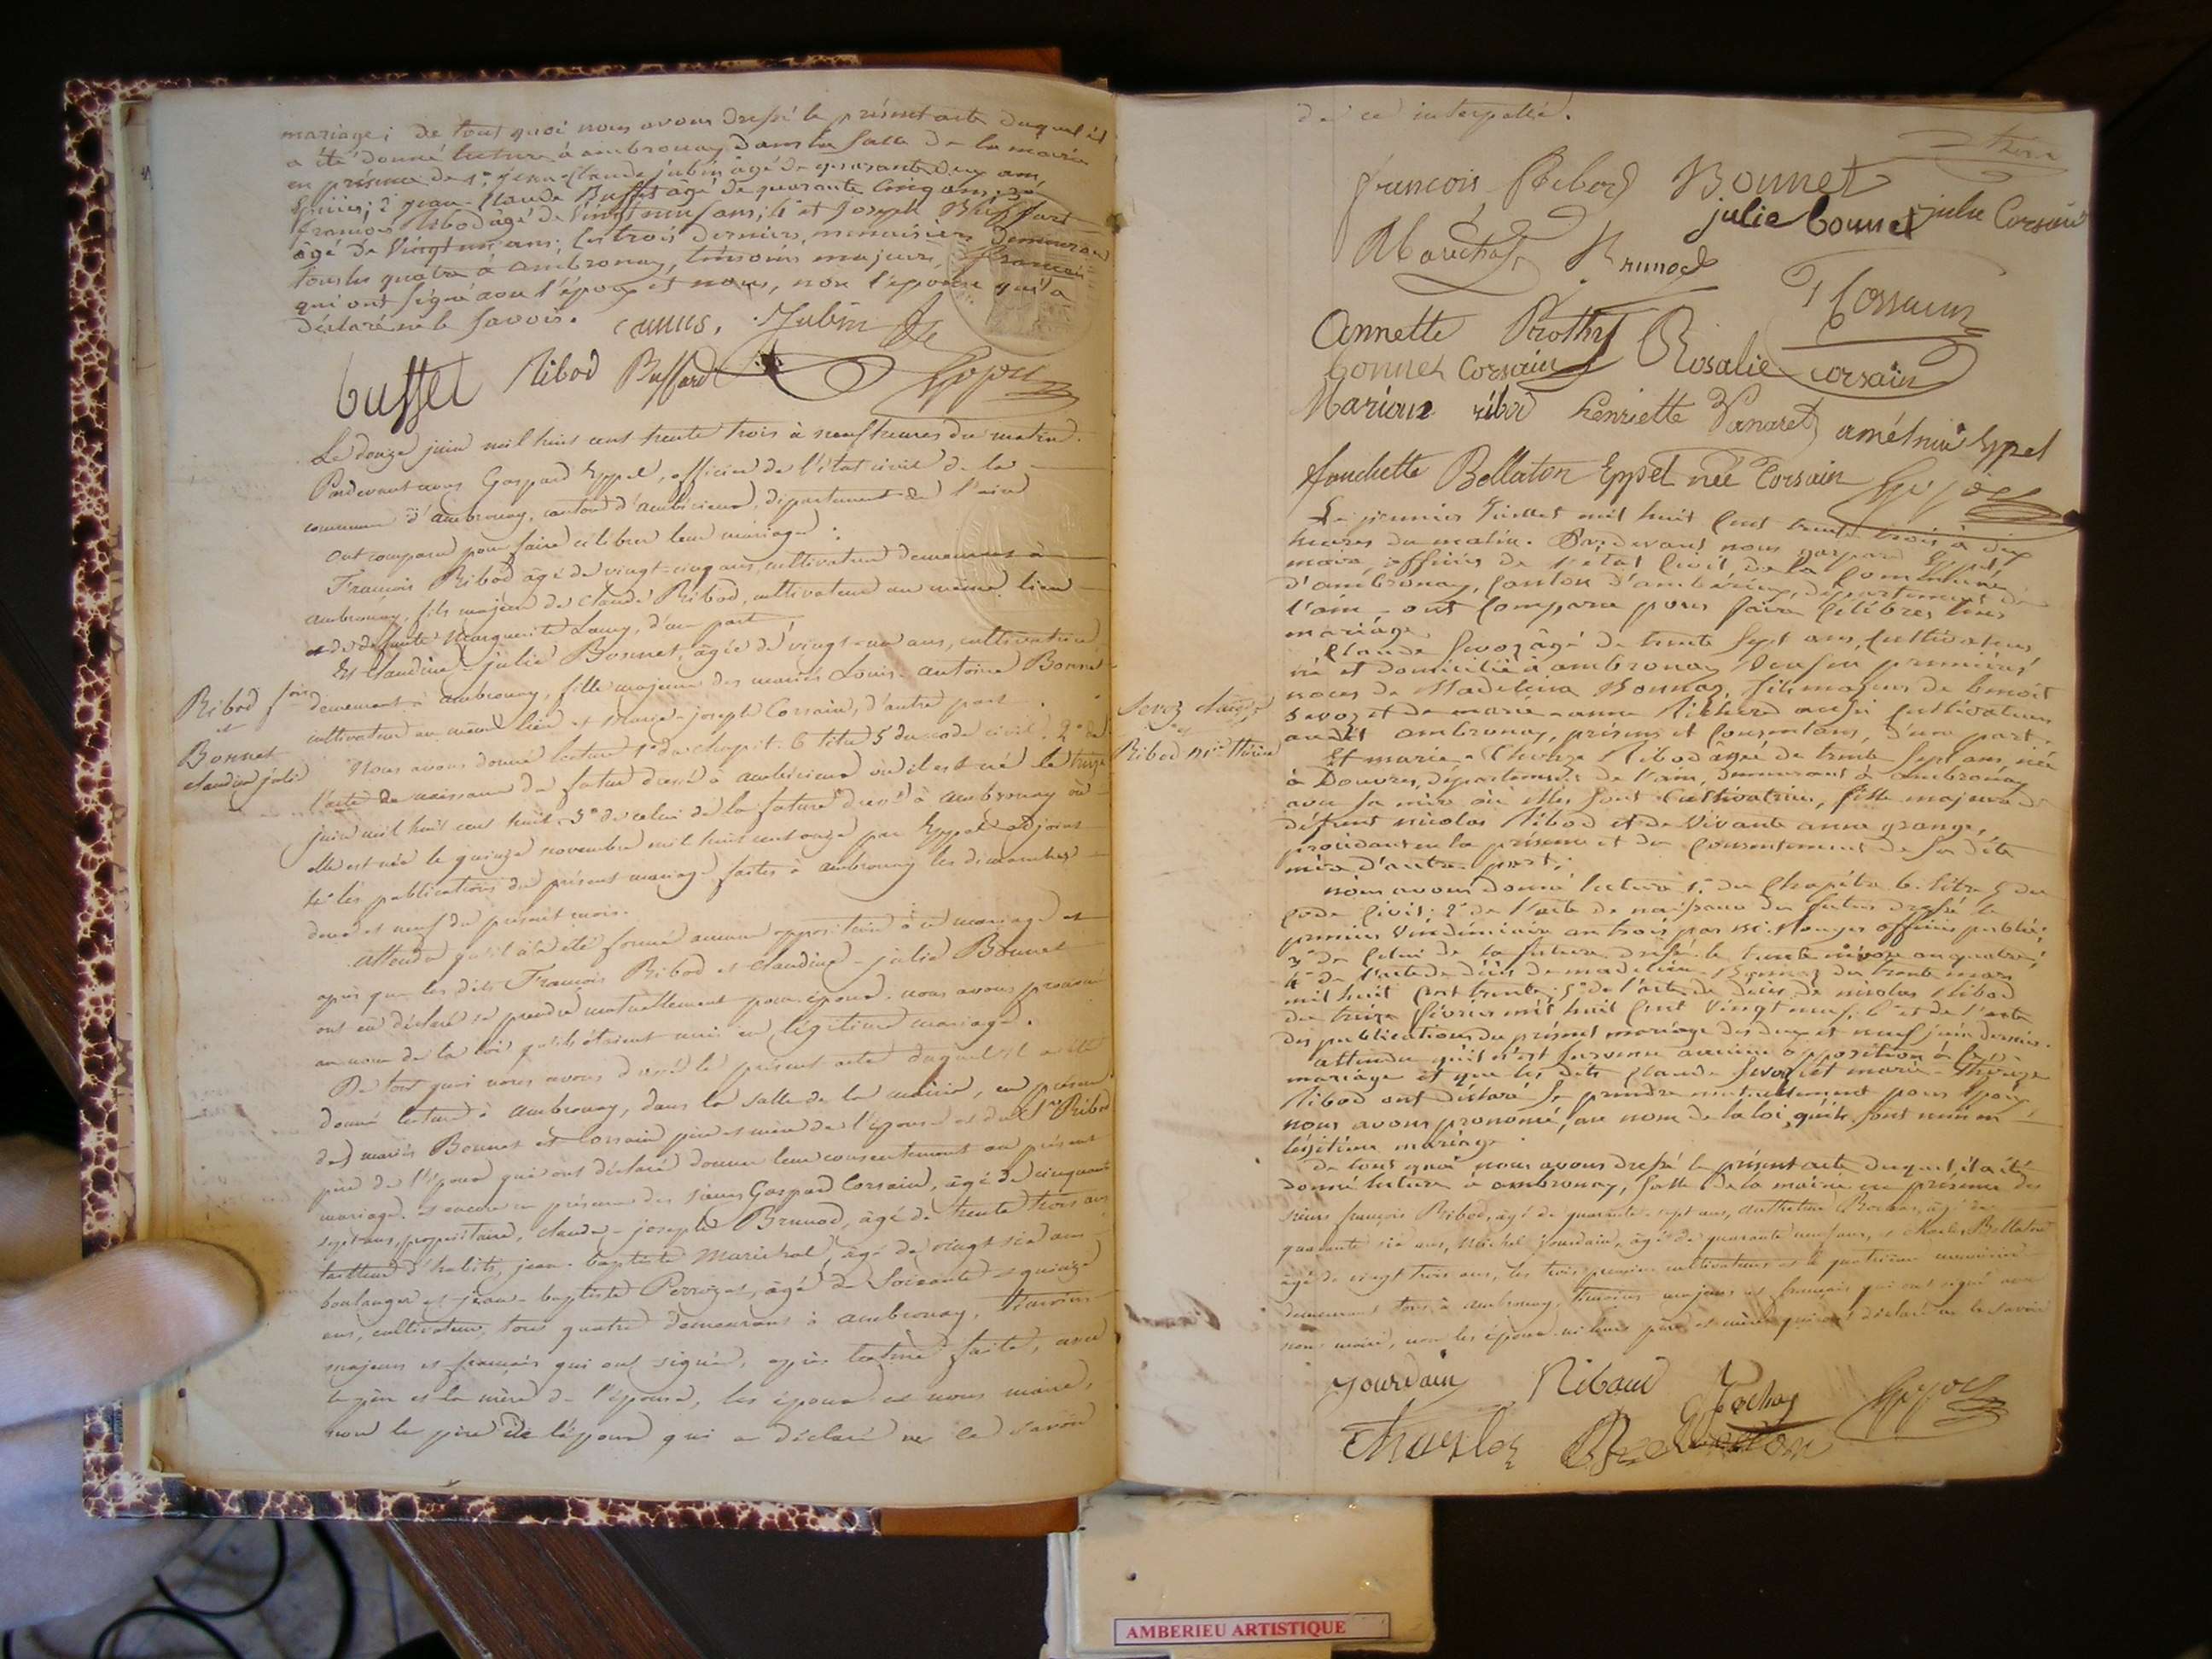 mariage; de tout quoi nous avons dressé le présent acte duquel il
a été donné lecture à ambronay dans la salle de la mairie
en présence de 1° jean-Claude Jubin âgé de quarante deux ans,
épicier; 2° jean-Claude Buffet âgé de quarante cinq ans, 3°
françois Ribod âgé de vingt neuf ans; 4° et Joseph Buffard
âgé de vingt un ans; les trois derniers menuisiers demeurant
tous les quatre à ambronay, témoins majeurs, français
qui ont signé avec l'époux et nous, non l'épouse qui a
déclaré ne le savoir. camus. Jubin
buffet Ribod Buffard Eppel
Le douze juin mil huit cent trente trois à neuf heures du matin.
Pardevant nous Gaspard Eppel, officier de l'état civil de la
commune d'ambronay, canton d'ambérieux, département de l'ain
ont comparu pour faire célébrer leur mariage:
François Ribod âgé de vingt-cinq ans, cultivateur demeurant à
ambronay, fils majeur de Claude Ribod, cultivateur au même lieu
et de défunte Marguerite Lamy, d'une part
Et Claudine-julie Bonnet, âgée de vingt-un ans, cultivatrice
demeurant à ambronay, fille majeure des mariés Louis-antoine Bonnet
cultivateur au même lieu et Marie-joseph Corsain, d'autre part.
Ribod fois
et
Bonnet
claudine julie
Nous avons donné lecture 1° du chapit. 6 titre 5 du code civil, 2° de
l'acte de naissance du futur dressé à ambérieux où il est né le treize
juin mil huit cent huit, 3° de celui de la future dressé à ambronay où
elle est née le quinze novembre mil huit cent onze par Eppel adjoint
4° les publications du présent mariage faites à ambronay les dimanches
deux et neuf du présent mois.
attendu qu'il n'a été formé aucune opposition à ce mariage et
après que les dits François Ribod et claudine-julie Bonnet
ont eu déclaré se prendre mutuellement pour époux, nous avons prononcé
au nom de la loi qu'ils étaient unis en légitime mariage.
De tout quoi nous avons dressé le présent acte duquel il a été
donné lecture à ambronay, dans la salle de la mairie, en présence
des mariés Bonnet et Corsain père et mère de l'épouse et du Sr Ribod
père de l'époux qui ont déclaré donner leur consentement au présent
mariage. et encore en présence des sieurs Gaspard Corsain, âgé de cinquante
sept ans, propriétaire, claude-joseph Brunod, âgé de trente trois ans
tailleur d'habits, jean-baptiste Maréchal, âgé de vingt six ans
boulanger et jean-baptiste Perrozet, âgé de soixante et quinze
ans, cultivateur, tous quatre demeurant à ambronay, témoins
majeurs et français qui ont signé, après lecture faite, avec
le père et la mère de l'épouse, les époux et nous maire,
non le père de l'époux qui a déclaré ne le savoir
de ce interpellé.
françois Ribod Bonnet
julie bonnet julie Corsain
Maréchal Brunod
Corsain
Annette
bonnet Corsain Rosalie corsain
Marianne ribod henriette Vanaret aménie Eppel
fanchette Bellaton Eppel née Corsain Eppel
Le premier Juillet mil huit cent trente trois à dix
heures du matin. Pardevant nous gaspard Eppel,
maire, officier de l'état civil de la commune
d'ambronay, canton d'ambérieu, département de
l'ain - ont comparu pour faire célébrer leur
mariage.
Claude Sevoz âgé de trente sept ans, cultivateur
né et domicilié à ambronay veuf en premières
noces de Madeleine Bonnaz, fils majeur de benoit
Sevoz et de marie-anne Richerd aussi cultivateurs
audit ambronay, présens et consentans, d'une part.
Sevoz claude
et
Ribod mie thérèse
Et marie-Thérèze Ribod âgée de trente sept ans, née
à Douvres, département de l'ain, demeurant à ambronay
avec sa mère où elles sont cultivatrices, fille majeure de
défunt nicolas Ribod et de vivante anne grange,
procédant en la présence et du consentement de sa dite
mère d'autre part;
nous avons donné lecture 1° du Chapitre 6 titre 5 du
code civil; 2° de l'acte de naissance du futur dressé le
premier vendémiaire an trois par officier public;
3° de celui de la future dressé le trente nivose an quatre;
4° de l'acte de décès de madeleine Bonnaz du trente mars
mil huit cent trente; 5° de l'acte de décès de nicolas Ribod
du treize février mil huit cent vingt neuf; 6° et de l'acte
des publications du présent mariage des deux et neuf juin dernier.
attendu qu'il n'est survenu aucune opposition à ce
mariage et que les dits Claude Sevoz et marie-Thérèze
Ribod ont déclaré se prendre mutuellement pour époux
nous avons prononcé, au nom de la loi, qu'ils sont unis en
légitime mariage.
De tout quoi nous avons dressé le présent acte duquel il a été
donné lecture à ambronay, salle de la mairie en présence des
sieurs françois Ribod, âgé de quarante-sept ans, âgé de
quarante six ans, Michel Jourdain, âgé de quarante neuf ans, et Charles Bellaton
âgé de vingt trois ans, les trois premiers cultivateurs et le quatrième menuisier
demeurant tous à ambronay, témoins majeurs et français qui ont signé avec
nous maire, non les époux ni leurs père et mères qui ont déclaré ne le savoir
Jourdain Ribaud Eppel
Charles Bellaton
AMBERIEU ARTISTIQUE